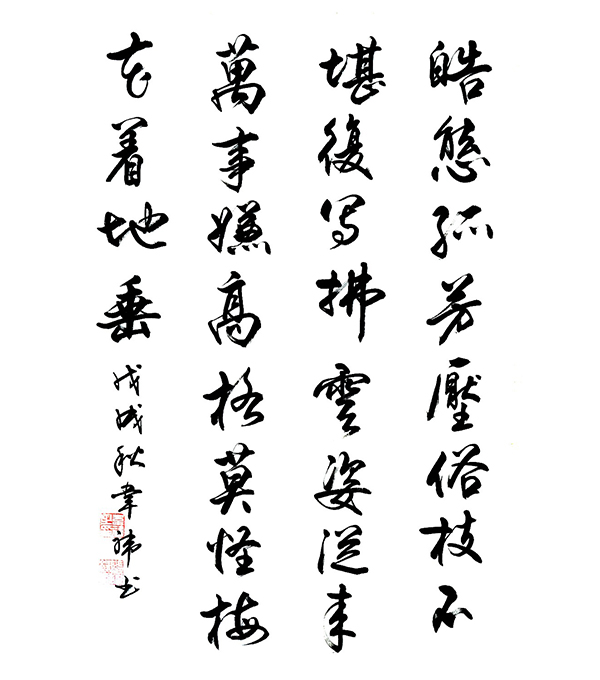 皓態孤芳壓俗枝不
堪復写拂雲姿從来
萬事嫌高格莫怪梅
花着地垂
戊戌秋韋禕书